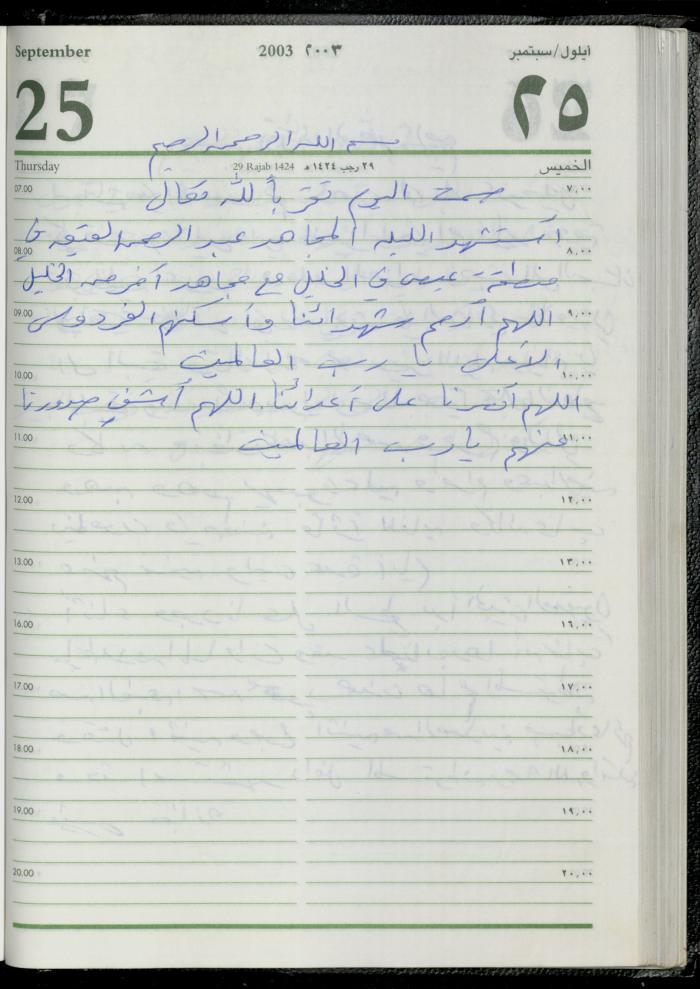 September 2003 ٢٠٠٣ ايلول/سبتمبر
25 ٢٥
بسم الله الرحمن الرحيم
Thursday 29 Rajab 1424 ٢٩ رجب ١٤٢٤ هـ الخميس
07.00 صمت اليوم تقرباً لله تعالى ٧,٠٠
استشهد الليلة المجاهد عبد الرحمن في
08.00 ٨,٠٠
منطقة عيصى في الخليل مع مجاهد آخر من الخليل
09.00 اللهم أرحم شهدائنا وأسكنهم الفردوس ٩,٠٠
الأعلى يا رب العالمين
10.00 ١٠,٠٠
اللهم انصرنا على أعدائنا اللهم أشفِ صدورنا
11.00 منهم يا رب العالمين ١١,٠٠
12.00 ١٢,٠٠
13.00 ١٣,٠٠
16.00 ١٦,٠٠
17.00 ١٧,٠٠
18.00 ١٨,٠٠
19.00 ١٩,٠٠
20.00 ٢٠,٠٠